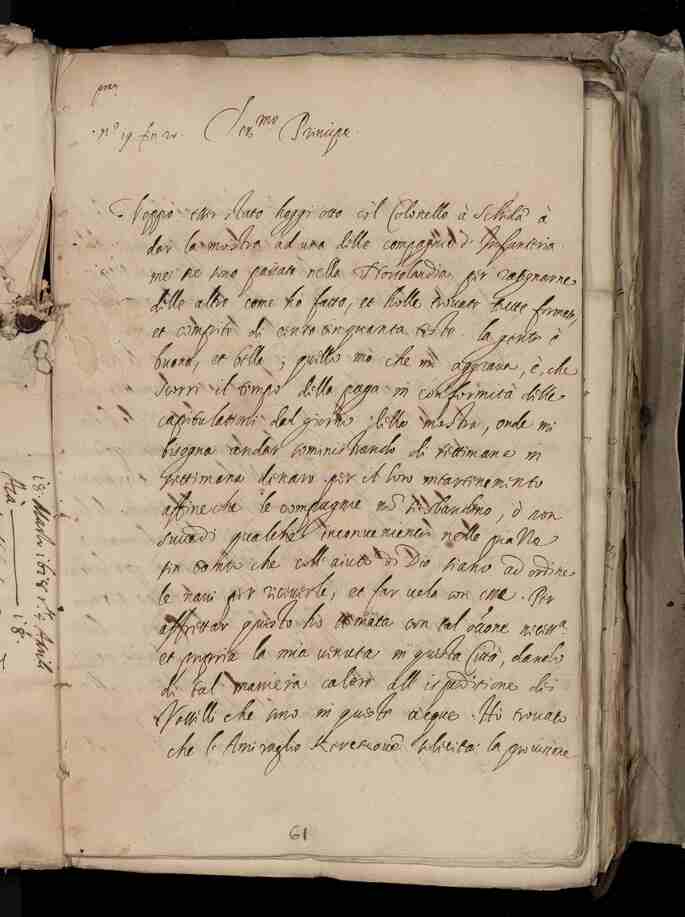 N.º 19. fin 20.
Ser.mo Principe
esser stato hoggi otto col Colonello à à
dar la mostra ad una delle compagnie d'Infanteria
me ne sono passato nella Nortolandia, per rasegnarne
delle altre come ho fatto, et holle trovate tutte formate,
et compite di cento cinquanta teste. la gente è
buona, et bella; quello mo che mi aggrava, è, che
scorri il tempo della paga in conformità delle
capitulationi dal giorno della mostra, onde mi
bisogna andar somministrando di settimana in
settimana denaro per il loro intertenimento
affine che le compagnie nō si sbandino, ò non
succedi qualche inconveniente nelle piazze
sin tanto che coll'aiuto di Dio siano ad ordine
le navi per riceverle, et far vela con esse. Per
affrettar questo ho stimata con tal
et propria la mia venuta in questa Città, dando
di tal maniera calore all'ispeditione dei
Vasselli che sono in queste acque. Hò trovato
che l'Amiraglio solicita la provisione
61
18. Marzo 1618
18.